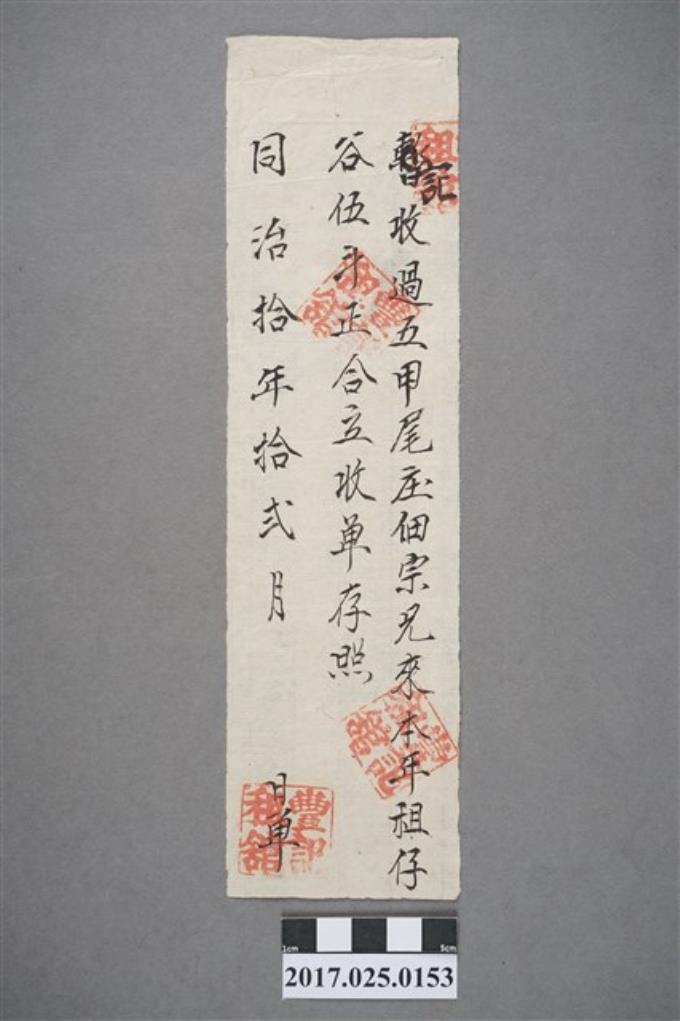 暫記收過五甲尾庄佃宗兄來本年租仔
谷伍斗正合立收单存照
同治拾年拾弍月
日单
豐記
租館
1cm
5cm
2017.025.0153